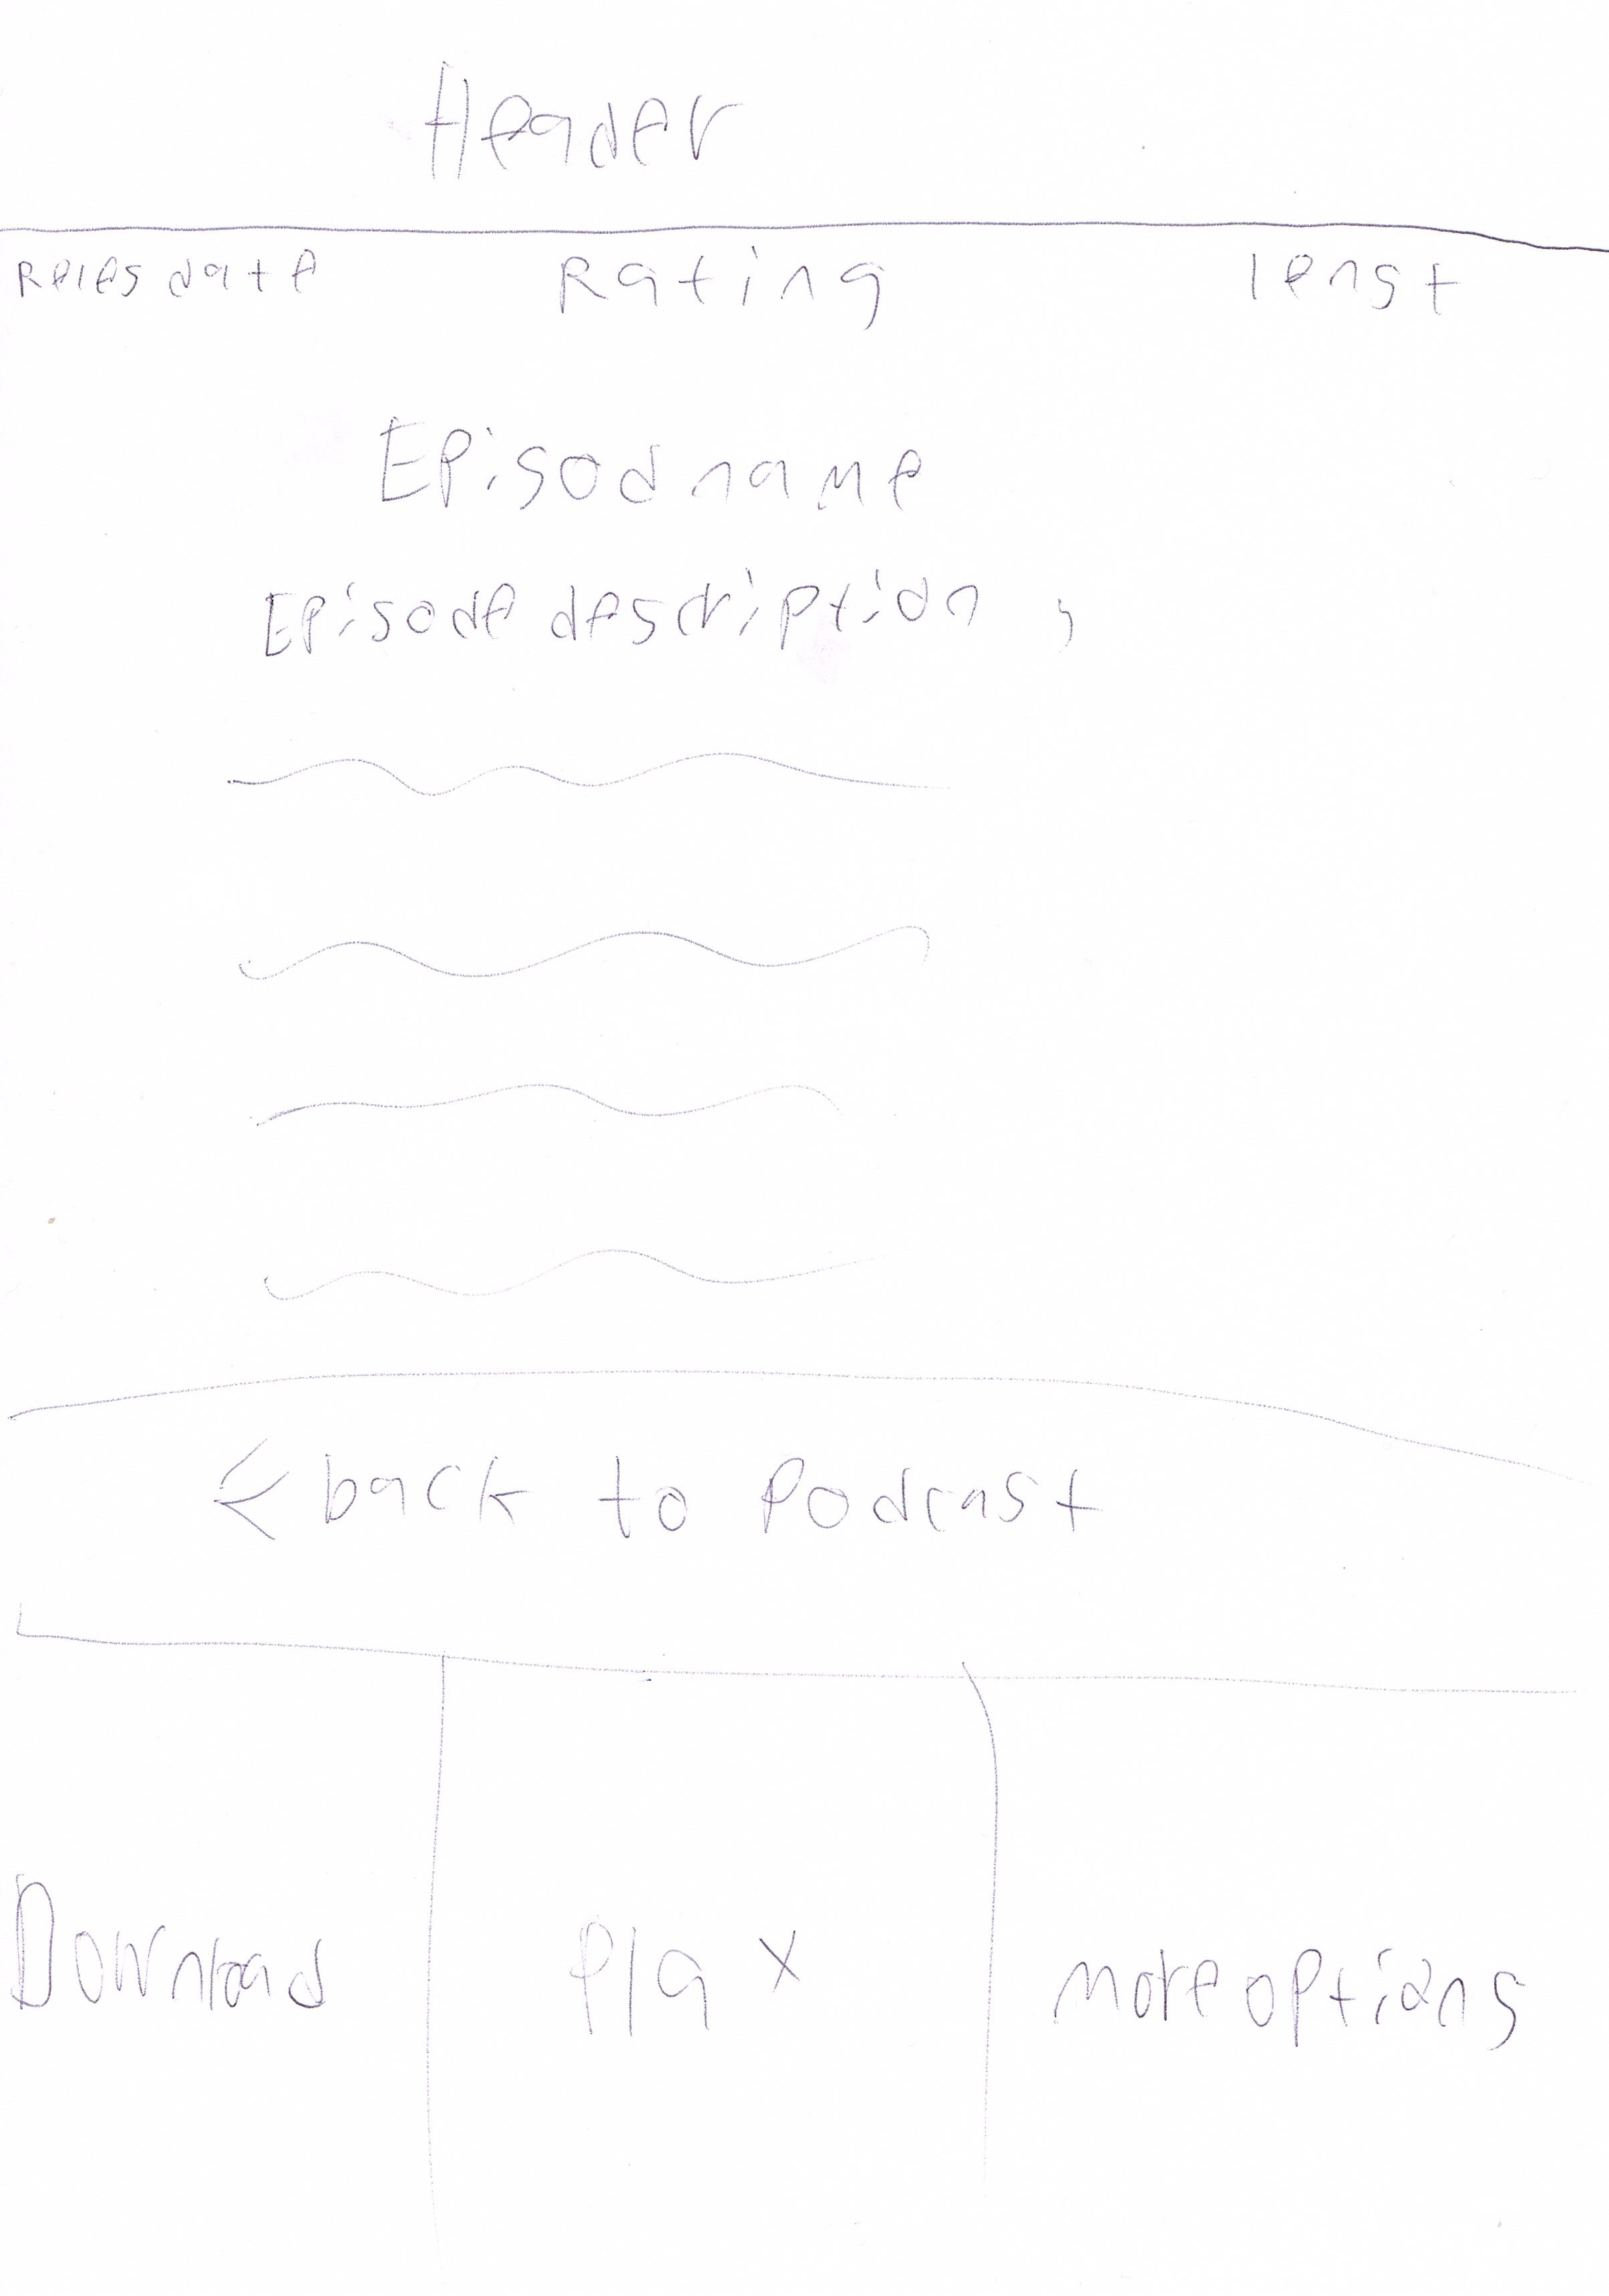 Header
Reles date Rating lengt
Episod name
Episode description
< back to Podcast
Download Play more options